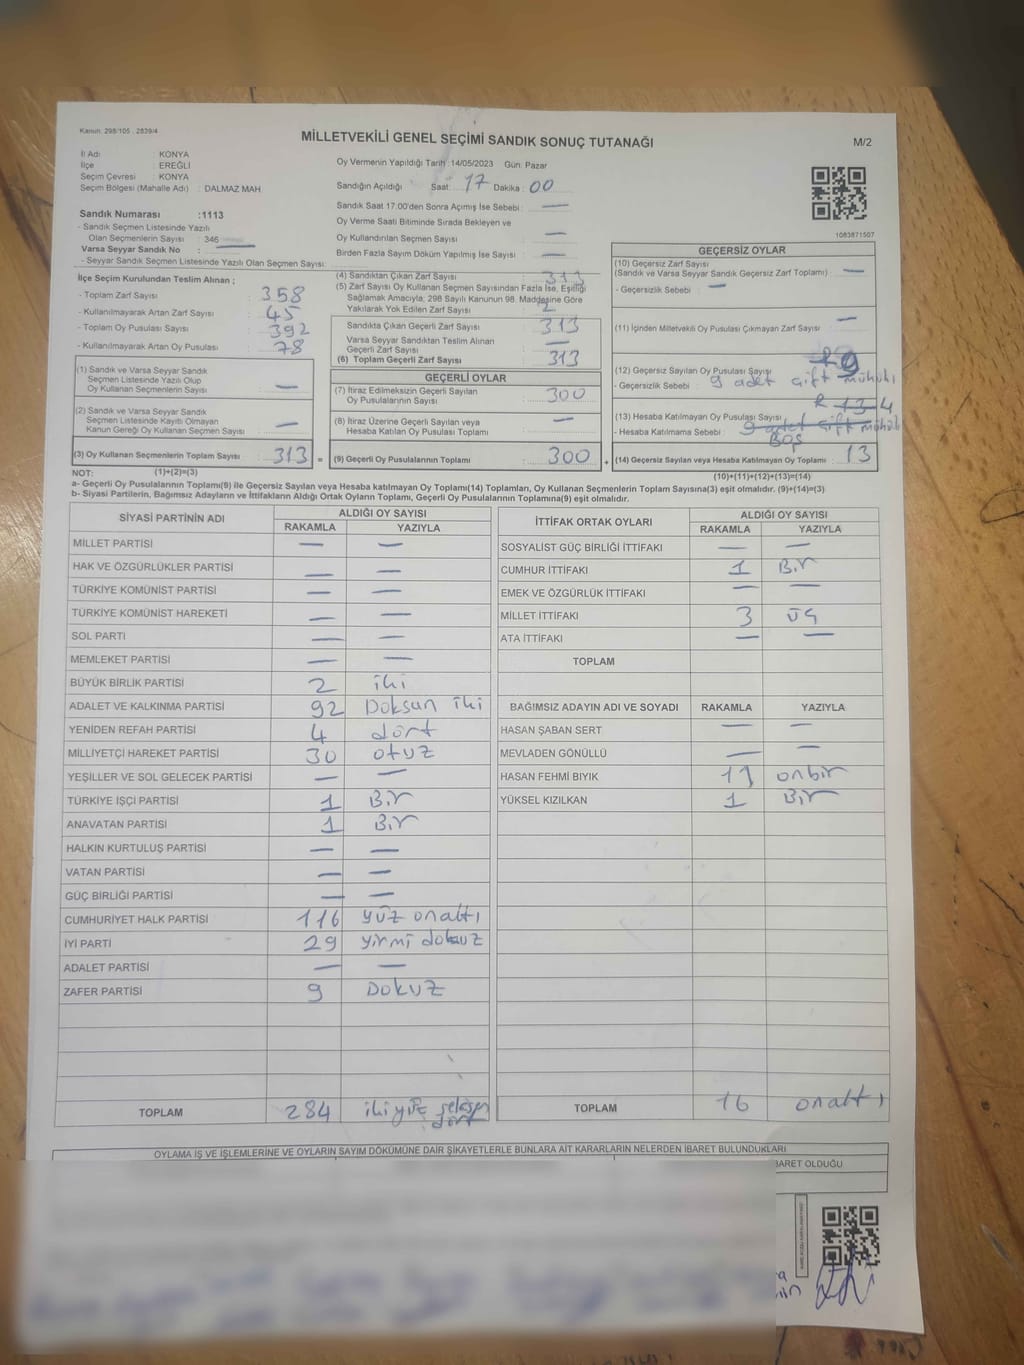 Kanun: 298/105 . 2839/4
MİLLETVEKİLİ GENEL SEÇİMİ SANDIK SONUÇ TUTANAĞI
M/2
İl Adı : KONYA
İlçe : EREĞLİ
Seçim Çevresi : KONYA
Seçim Bölgesi (Mahalle Adı) : DALMAZ MAH.
Sandık Numarası :1113
- Sandık Seçmen Listesinde Yazılı
Olan Seçmenlerin Sayısı : 346
Varsa Seyyar Sandık No :
- Seyyar Sandık Seçmen Listesinde Yazılı Olan Seçmen Sayısı:
Oy Vermenin Yapıldığı Tarih :14/05/2023 Gün: Pazar
Sandığın Açıldığı Saat: 17 Dakika : 00
Sandık Saat 17.00'den Sonra Açımış İse Sebebi: —
Oy Verme Saati Bitiminde Sırada Bekleyen ve
Oy Kullandırılan Seçmen Sayısı : —
Birden Fazla Sayım Döküm Yapılmış İse Sayısı : —
1083871507
İlçe Seçim Kurulundan Teslim Alınan ;
- Toplam Zarf Sayısı : 358
- Kullanılmayarak Artan Zarf Sayısı : 45
- Toplam Oy Pusulası Sayısı : 392
- Kullanılmayarak Artan Oy Pusulası : 78
(1) Sandık ve Varsa Seyyar Sandık
Seçmen Listesinde Yazılı Olup
Oy Kullanan Seçmenlerin Sayısı : —
(2) Sandık ve Varsa Seyyar Sandık
Seçmen Listesinde Kayıtlı Olmayan
Kanun Gereği Oy Kullanan Seçmen Sayısı : —
(3) Oy Kullanan Seçmenlerin Toplam Sayısı : 313 =
(4) Sandıktan Çıkan Zarf Sayısı : 313
(5) Zarf Sayısı Oy Kullanan Seçmen Sayısından Fazla İse, Eşitliği
Sağlamak Amacıyla, 298 Sayılı Kanunun 98. Maddesine Göre
Yakılarak Yok Edilen Zarf Sayısı :
Sandıkta Çıkan Geçerli Zarf Sayısı : 313
Varsa Seyyar Sandıktan Teslim Alınan
Geçerli Zarf Sayısı : —
(6) Toplam Geçerli Zarf Sayısı : 313
GEÇERLİ OYLAR
(7) İtiraz Edilmeksizin Geçerli Sayılan
Oy Pusulalarının Sayısı : 300
(8) İtiraz Üzerine Geçerli Sayılan veya
Hesaba Katılan Oy Pusulası Toplamı : —
(9) Geçerli Oy Pusulalarının Toplamı : 300 +
GEÇERSİZ OYLAR
(10) Geçersiz Zarf Sayısı
(Sandık ve Varsa Seyyar Sandık Geçersiz Zarf Toplamı) : —
- Geçersizlik Sebebi : —
(11) İçinden Milletvekili Oy Pusulası Çıkmayan Zarf Sayısı : —
(12) Geçersiz Sayılan Oy Pusulası Sayısı : 9
- Geçersizlik Sebebi : 9 adet çift mühürlü
(13) Hesaba Katılmayan Oy Pusulası Sayısı : 4
- Hesaba Katılmama Sebebi : 9 adet çift mühürlü
BOŞ
(14) Geçersiz Sayılan veya Hesaba Katılmayan Oy Toplamı : 13
NOT: (1)+(2)=(3) (10)+(11)+(12)+(13)=(14)
a- Geçerli Oy Pusulalarının Toplamı(9) ile Geçersiz Sayılan veya Hesaba katılmayan Oy Toplamı(14) Toplamları, Oy Kullanan Seçmenlerin Toplam Sayısına(3) eşit olmalıdır. (9)+(14)=(3)
b- Siyasi Partilerin, Bağımsız Adayların ve İttifakların Aldığı Ortak Oyların Toplamı, Geçerli Oy Pusulalarının Toplamına(9) eşit olmalıdır.
SİYASİ PARTİNİN ADI ALDIĞI OY SAYISI
RAKAMLA YAZIYLA
MİLLET PARTİSİ — —
HAK VE ÖZGÜRLÜKLER PARTİSİ — —
TÜRKİYE KOMÜNİST PARTİSİ — —
TÜRKİYE KOMÜNİST HAREKETİ — —
SOL PARTİ — —
MEMLEKET PARTİSİ — —
BÜYÜK BİRLİK PARTİSİ 2 iki
ADALET VE KALKINMA PARTİSİ 92 Doksan iki
YENİDEN REFAH PARTİSİ 4 dört
MİLLİYETÇİ HAREKET PARTİSİ 30 otuz
YEŞİLLER VE SOL GELECEK PARTİSİ — —
TÜRKİYE İŞÇİ PARTİSİ 1 Bir
ANAVATAN PARTİSİ 1 Bir
HALKIN KURTULUŞ PARTİSİ — —
VATAN PARTİSİ — —
GÜÇ BİRLİĞİ PARTİSİ — —
CUMHURİYET HALK PARTİSİ 116 yüz onaltı
İYİ PARTİ 29 yirmi dokuz
ADALET PARTİSİ — —
ZAFER PARTİSİ 9 Dokuz
TOPLAM 284 ikiyüz seksen
dört
İTTİFAK ORTAK OYLARI ALDIĞI OY SAYISI
RAKAMLA YAZIYLA
SOSYALİST GÜÇ BİRLİĞİ İTTİFAKI — —
CUMHUR İTTİFAKI 1 Bir
EMEK VE ÖZGÜRLÜK İTTİFAKI — —
MİLLET İTTİFAKI 3 üç
ATA İTTİFAKI — —
TOPLAM
BAĞIMSIZ ADAYIN ADI VE SOYADI RAKAMLA YAZIYLA
HASAN ŞABAN SERT — —
MEVLADEN GÖNÜLLÜ — —
HASAN FEHMİ BIYIK 11 onbir
YÜKSEL KIZILKAN 1 Bir
TOPLAM 16 onaltı
OYLAMA İŞ VE İŞLEMLERİNE VE OYLARIN SAYIM DÖKÜMÜNE DAİR ŞİKAYETLERLE BUNLARA AİT KARARLARIN NELERDEN İBARET BULUNDUKLARI
BARET OLDUĞU